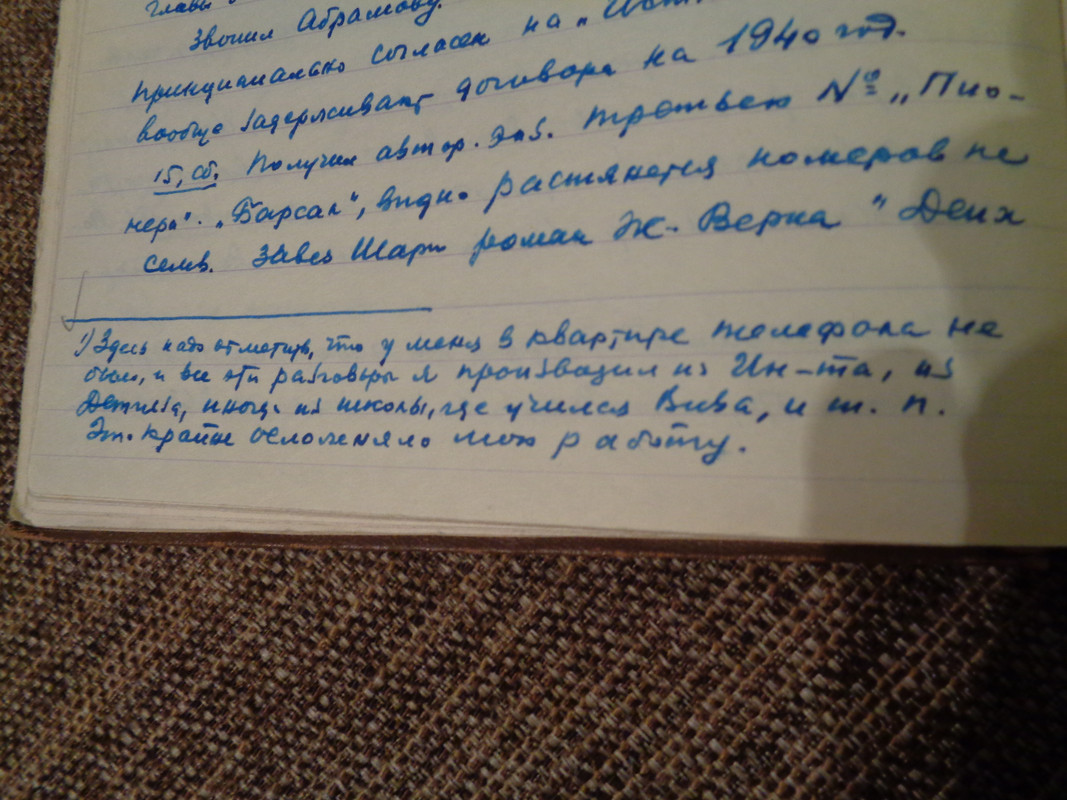 главы
Звонил Абрамову.
принципиально согласен на „
вообще задерживает договора на 1940 год.
15, сб. Получил автор. экз. третьего № „Пио-
нера". „Барсак", видно растянется номеров на
семь. Завез Шари роман Ж. Верна "
1) Здесь надо отметить, что у меня в квартире телефона не
было, и все эти разговоры я производил из Ин-та, из
Детиз'а, иногда из школы, где учился Вива, и т. п.
Это крайне осложняло мою работу.